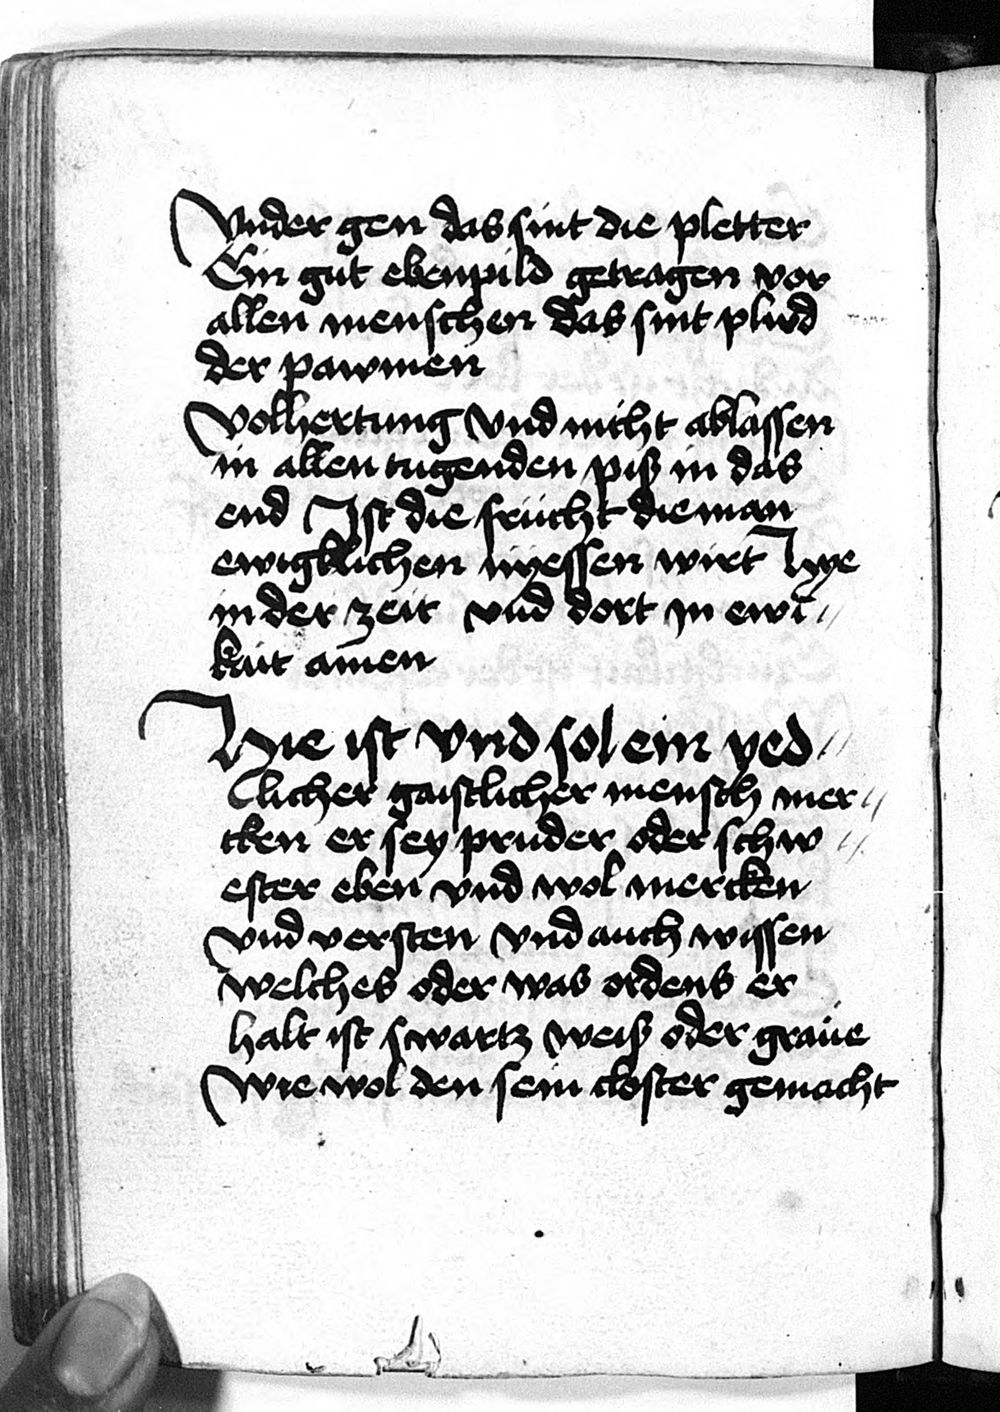 Vnder gen das sint die pletter
Ein gut ebenpild getragen vor
allen menschen das sint plüd
der pawmen
Volhertung vnd nicht ablassen
in allen tugenden piß in das
end Ist die frücht die man
ewigklichen nyessen wirt Hye
in der zeit vnd dort in ewi//
kait amen
Hie ist vnd sol ein yed//
licher gaistlicher mensch mer//
cken er sey pruder oder schw//
ester eben vnd wol mercken
vnd versten vnd auch wissen
welches oder was ordens er
halt ist swartz weiß oder graüe
Wie wol den sein closter gemacht